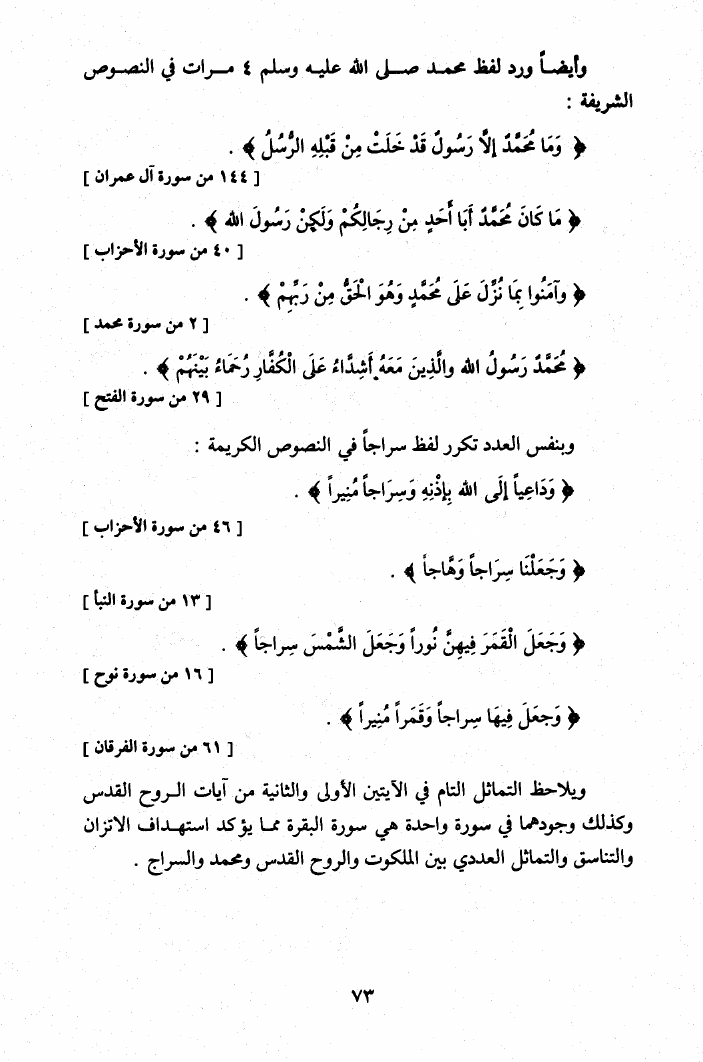 وأيضـاً ورد لفظ محمـد صـلى الله عليـه وسلم ٤ مـرات في النصـوص
الشريفة :
﴿ وَمَا مُحَمَّدٌ إلَّا رَسُولٌ قَدْ خَلَتْ مِنْ قَبْلِهِ الرُّسُلُ ﴾ .
[ ١٤٤ من سورة آل عمران ]
﴿ مَا كَانَ مُحَمَّدٌ أَبَا أَحَدٍ مِنْ رِجَالِكُمْ وَلَكِنْ رَسُولَ الله ﴾ .
[ ٤٠ من سورة الأحزاب ]
﴿ وآمَنُوا بِمَا نُزِّلَ عَلَى مُحَمَّدٍ وَهُوَ الْحَقُّ مِنْ رَبِّهِمْ ﴾ .
[ ٢ من سورة محمد ]
﴿ مُحَمَّدٌ رَسُولُ الله والَّذِينَ مَعَهُ أَشِدَّاءُ عَلَى الْكُفَّارِ رُحَمَاءُ بَيْنَهُمْ ﴾ .
[ ٢٩ من سورة الفتح ]
وبنفس العدد تكرر لفظ سراجاً في النصوص الكريمة :
﴿ وَدَاعِياً إلَى الله بِإذْنِهِ وَسِرَاجاً مُنِيراً ﴾ .
[ ٤٦ من سورة الأحزاب ]
﴿ وَجَعَلْنَا سِرَاجاً وَهَّاجاً ﴾ .
[ ١٣ من سورة النبأ ]
﴿ وَجَعَلَ الْقَمَرَ فِيهِنَّ نُوراً وَجَعَلَ الشَّمْسَ سِراجاً ﴾ .
[ ١٦ من سورة نوح ]
﴿ وَجَعَلَ فِيهَا سِراجاً وَقَمَراً مُنِيراً ﴾ .
[ ٦١ من سورة الفرقان ]
ويلاحظ التماثل التام في الآيتين الأولى والثانية من آيات الـروح القدس
وكذلك وجودهما في سورة واحدة هي سورة البقرة ممـا يؤكد استهـداف الاتزان
والتناسق والتماثل العددي بين الملكوت والروح القدس ومحمد والسراج .
٧٣